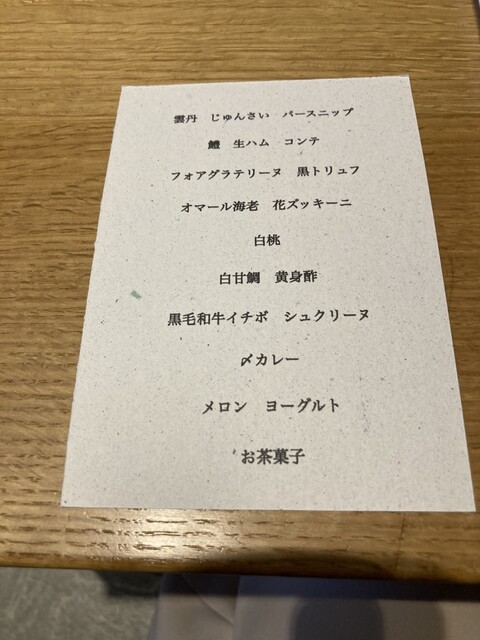 雲丹　じゅんさい　パースニップ
鱧　生ハム　コンテ
フォアグラテリーヌ　黒トリュフ
オマール海老　花ズッキーニ
白桃
白甘鯛　黄身酢
黒毛和牛イチボ　シュクリーヌ
〆カレー
メロン　ヨーグルト
お茶菓子